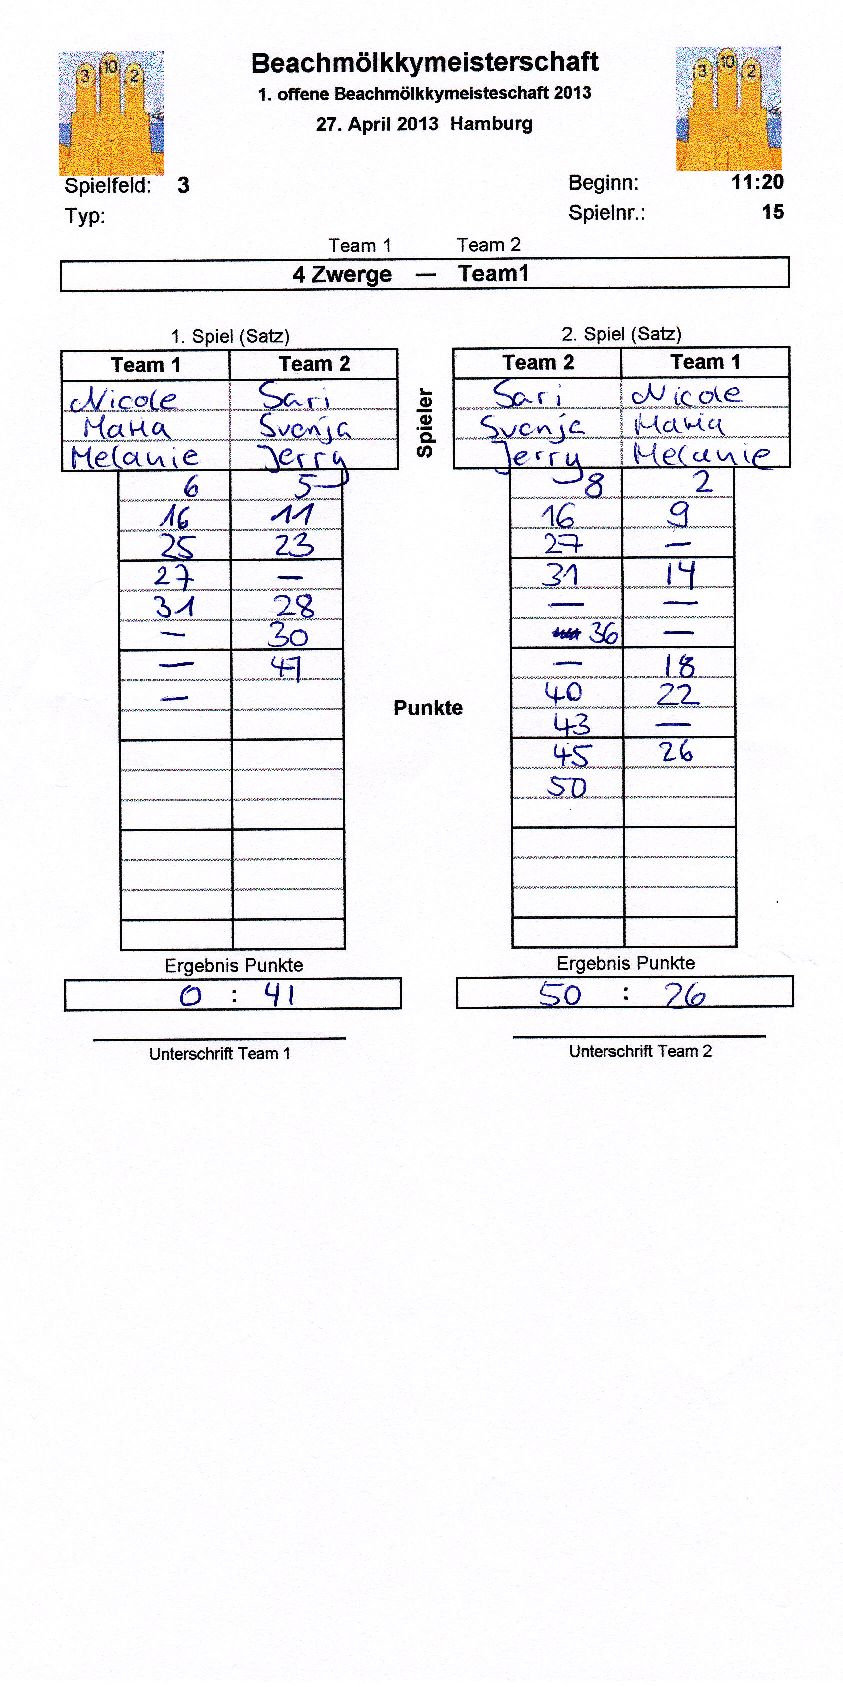 3 10 2
Beachmölkkymeisterschaft
3 10 2
1. offene Beachmölkkymeisteschaft 2013
27. April 2013 Hamburg
Spielfeld: 3
Beginn: 11:20
Typ:
Spielnr.: 15
Team 1 Team 2
4 Zwerge — Team1
1. Spiel (Satz)
Team 1 Team 2
Nicole Sari
Maria Svenja
Melanie Jerry
6 5
16 11
25 23
27 —
31 28
— 30
— 41
—
Ergebnis Punkte
0 : 41
Unterschrift Team 1
Spieler
Punkte
2. Spiel (Satz)
Team 2 Team 1
Sari Nicole
Svenja Maria
Jerry Melanie
8 2
16 9
27 —
31 14
— —
36 —
— 18
40 22
43 —
45 26
50
Ergebnis Punkte
50 : 26
Unterschrift Team 2